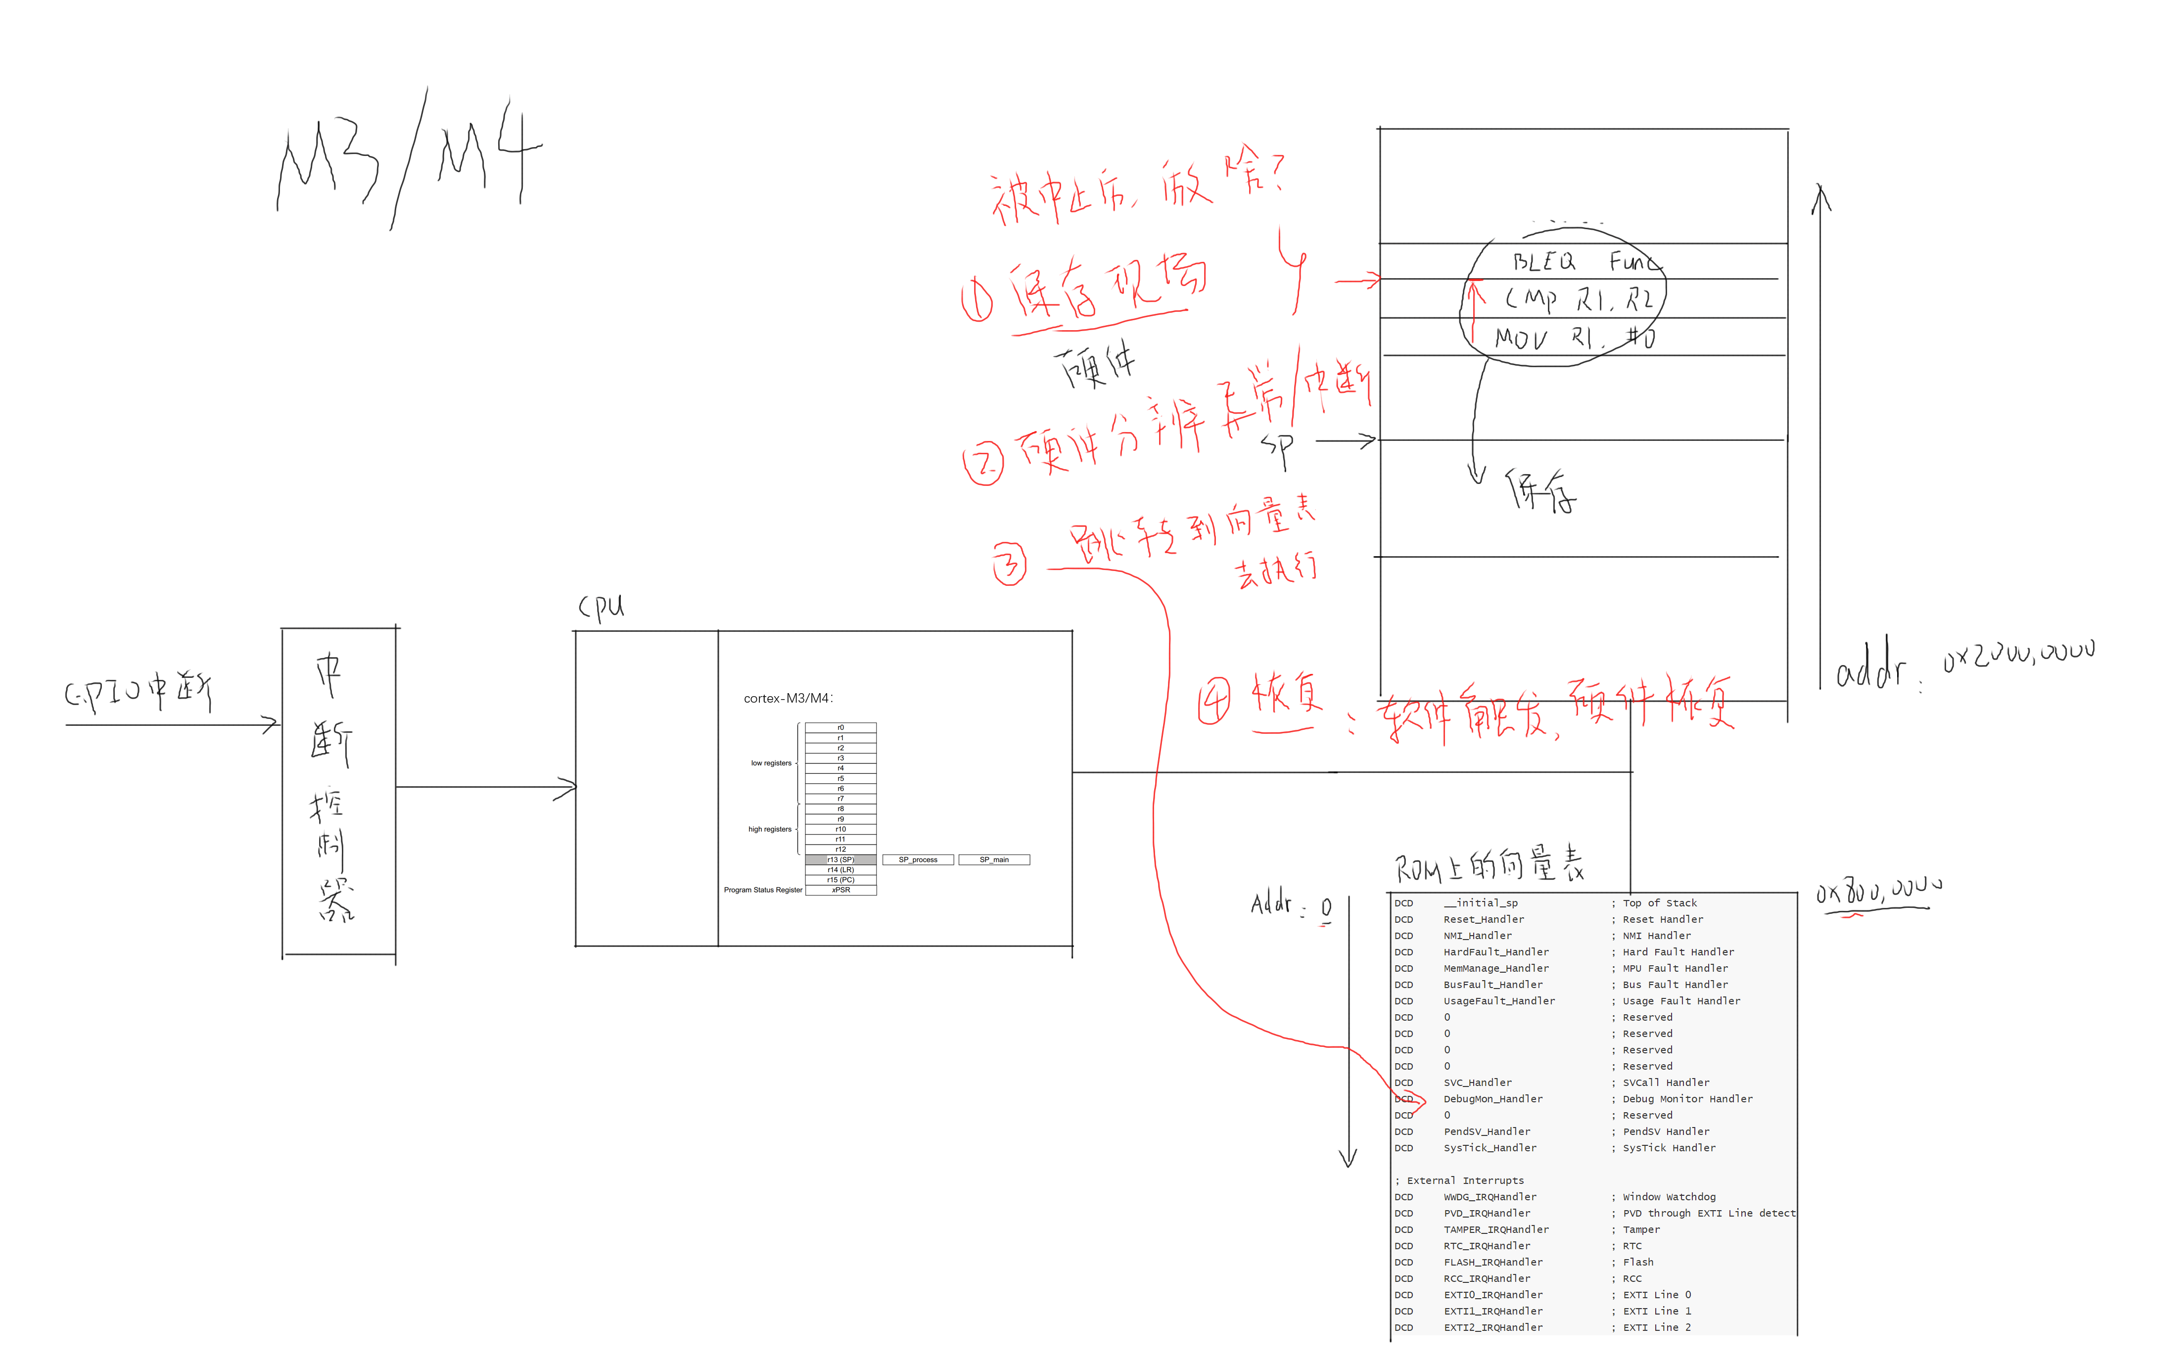 M3/M4
被中止后，做啥?
① 保存现场
硬件
② 硬件分辨异常/中断
③ 跳转到向量表
去执行
④ 恢复：软件触发，硬件恢复
BLEQ Func
CMP R1, R2
MOV R1, #0
SP
保存
addr: 0x2000,0000
GPIO中断
中断控制器
CPU
cortex-M3/M4:
r0
r1
r2
r3
low registers
r4
r5
r6
r7
r8
r9
high registers
r10
r11
r12
r13 (SP) SP_process SP_main
r14 (LR)
r15 (PC)
Program Status Register xPSR
ROM上的向量表
Addr: 0
0x800,0000
DCD __initial_sp ; Top of Stack
DCD Reset_Handler ; Reset Handler
DCD NMI_Handler ; NMI Handler
DCD HardFault_Handler ; Hard Fault Handler
DCD MemManage_Handler ; MPU Fault Handler
DCD BusFault_Handler ; Bus Fault Handler
DCD UsageFault_Handler ; Usage Fault Handler
DCD 0 ; Reserved
DCD 0 ; Reserved
DCD 0 ; Reserved
DCD 0 ; Reserved
DCD SVC_Handler ; SVCall Handler
DCD DebugMon_Handler ; Debug Monitor Handler
DCD 0 ; Reserved
DCD PendSV_Handler ; PendSV Handler
DCD SysTick_Handler ; SysTick Handler
; External Interrupts
DCD WWDG_IRQHandler ; Window Watchdog
DCD PVD_IRQHandler ; PVD through EXTI Line detect
DCD TAMPER_IRQHandler ; Tamper
DCD RTC_IRQHandler ; RTC
DCD FLASH_IRQHandler ; Flash
DCD RCC_IRQHandler ; RCC
DCD EXTI0_IRQHandler ; EXTI Line 0
DCD EXTI1_IRQHandler ; EXTI Line 1
DCD EXTI2_IRQHandler ; EXTI Line 2